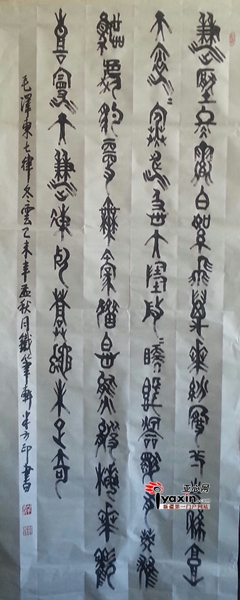 雪壓冬雲白絮飛萬花紛謝一時稀高
天滾〻寒流急大地微〻暖氣吹獨有英雄
驅虎豹更無豪杰怕熊羆梅花歡
喜漫天雪凍死蒼蠅未足奇
毛澤東七律冬雲乙未年孟秋月鐵筆軒印書
亚心网
Iyaxin.com